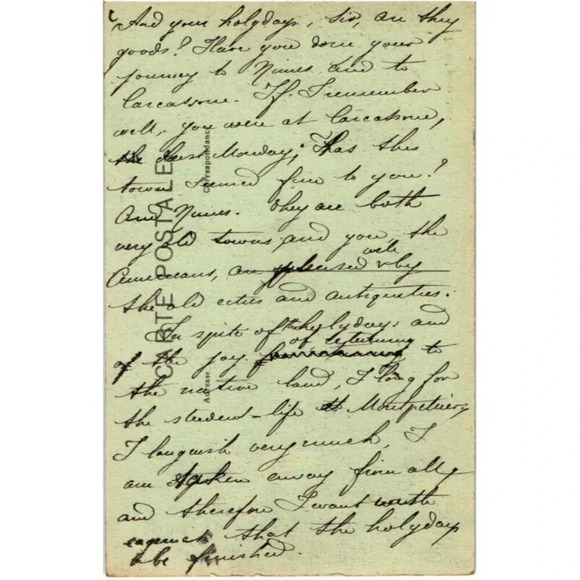 And your holydays, Sir, are they
goods? Have you done your
journey to Nimes and to
Carcassone. If I remember
well, you were at Carcassone,
the last Monday; Has this
town seemed fine to you?
And Nimes. They are both
very old towns, and you, the
Americans, are well pleased by
the old cities and antiquities.
In spite of the holydays and
of the joy of returning to
the native land, I long for
the student-life at Montpellier,
I languish very much, I
am taken away from all,
and therefore I want with
that the holydays
be finished.
CARTE POSTALE
Correspondance
Adresse